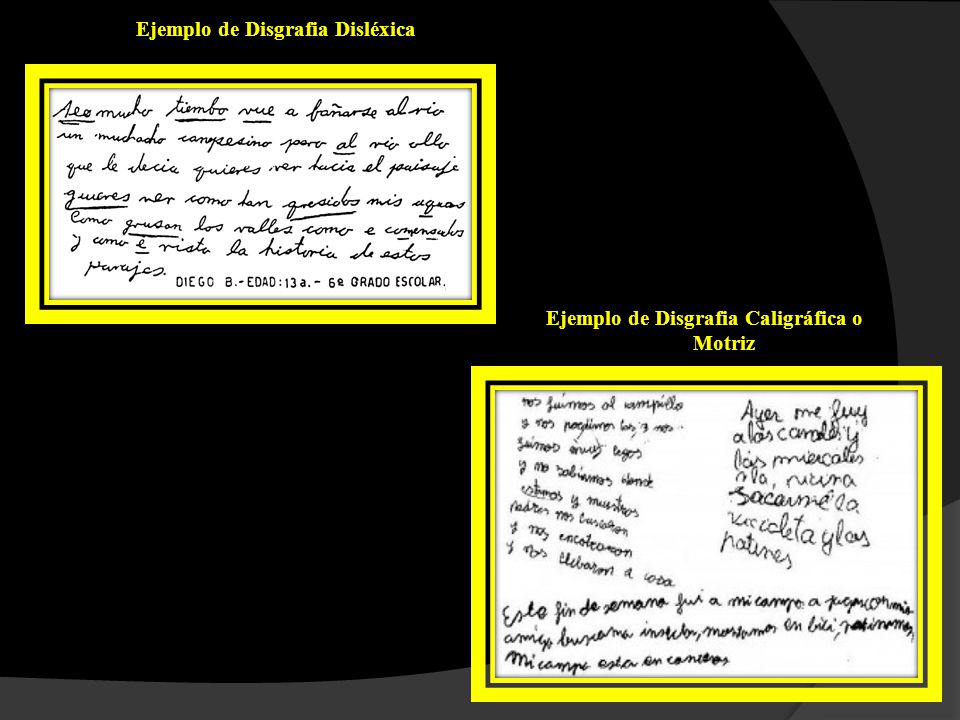 Ejemplo de Disgrafia Disléxica
seo mucho tiembo vue a bañarse al rio
un muchacho canpesino pero al rio ollo
que le decia quieres ver hacia el paisaje
guieres ver como tan gresidos mis aguas
como grusan los valles como e comensados
y como e vista la historia de estos
parajas.
DIEGO B.-EDAD:13a.- 6º GRADO ESCOLAR.
Ejemplo de Disgrafia Caligráfica o
Motriz
nos fuimos al campillo
y nos los 3 nos
fuimos muy legos
y no sabiamos donde
estamos y nuestros
padres nos buscaron
y nos encotraron
y nos llebaron a casa
Ayer me fuy
a los
las miercales
la,
sacarme la
vicicleta y las
patines
Este fin de semana fui a mi campo a jugar con mis
amigos, insectos, montamos en bici, patinamos,
Mi campo esta en